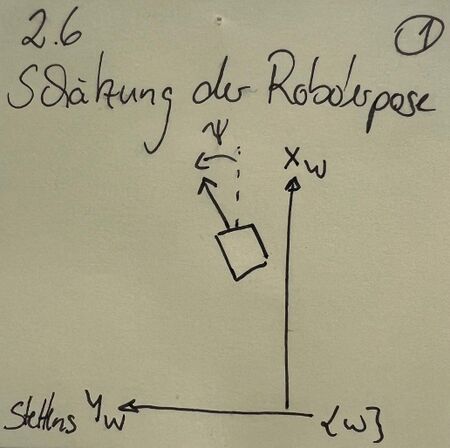 2.6
①
Schätzung der Roboterpose
ψ
x_w
Steffens y_w
{w}